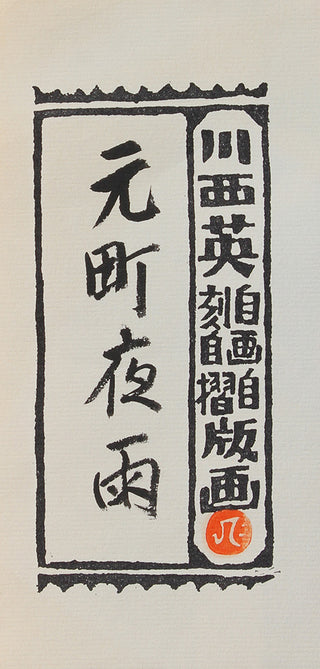 川西英自画自刻自摺版画
元町夜雨